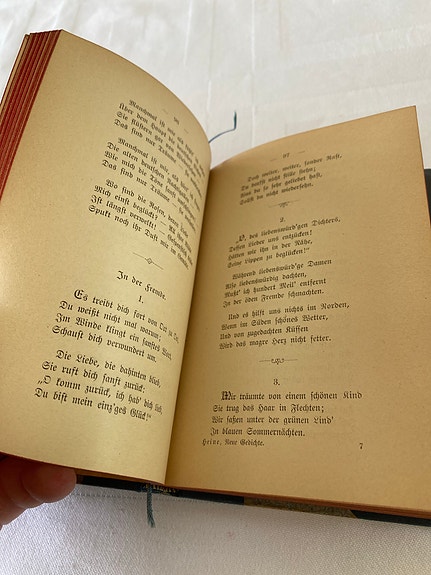 96
Manchmal ist mir, als
Über dem Haupt der
Sie flüstern gar
Das sind nur Träume
Manchmal ist mir, als
Die alten deutschen
Wie mich die Töne sanft
Das sind nur
Wo sind die Rosen, deren
Mich einst beglückt? — All
Ist längst verwelkt! —
Spukt noch ihr Duft wie im
In der Fremde.
1.
Es treibt dich fort von Ort zu Ort,
Du weißt nicht mal warum;
Im Winde klingt ein sanftes Wort,
Schaust dich verwundert um.
Die Liebe, die dahinten blieb,
Sie ruft dich sanft zurück:
„O komm zurück, ich hab' dich lieb,
Du bist mein einz'ges Glück!“
97
Doch weiter, weiter, sonder Rast,
Du darfst nicht stille stehn;
Was du so sehr geliebet hast,
Sollst du nicht wiedersehn.
2.
„O, des liebenswürd'gen Dichters,
Dessen Lieder uns entzücken!
Hätten wir ihn in der Nähe,
Seine Lippen zu beglücken!“
Während liebenswürd'ge Damen
Also liebenswürdig dachten,
Mußt' ich hundert Meil' entfernt
In der öden Fremde schmachten.
Und es hilft uns nichts im Norden,
Wenn im Süden schönes Wetter,
Und von zugedachten Küssen
Wird das magre Herz nicht fetter.
3.
Mir träumte von einem schönen Kind
Sie trug das Haar in Flechten;
Wir saßen unter der grünen Lind'
In blauen Sommernächten.
Heine, Neue Gedichte. 7